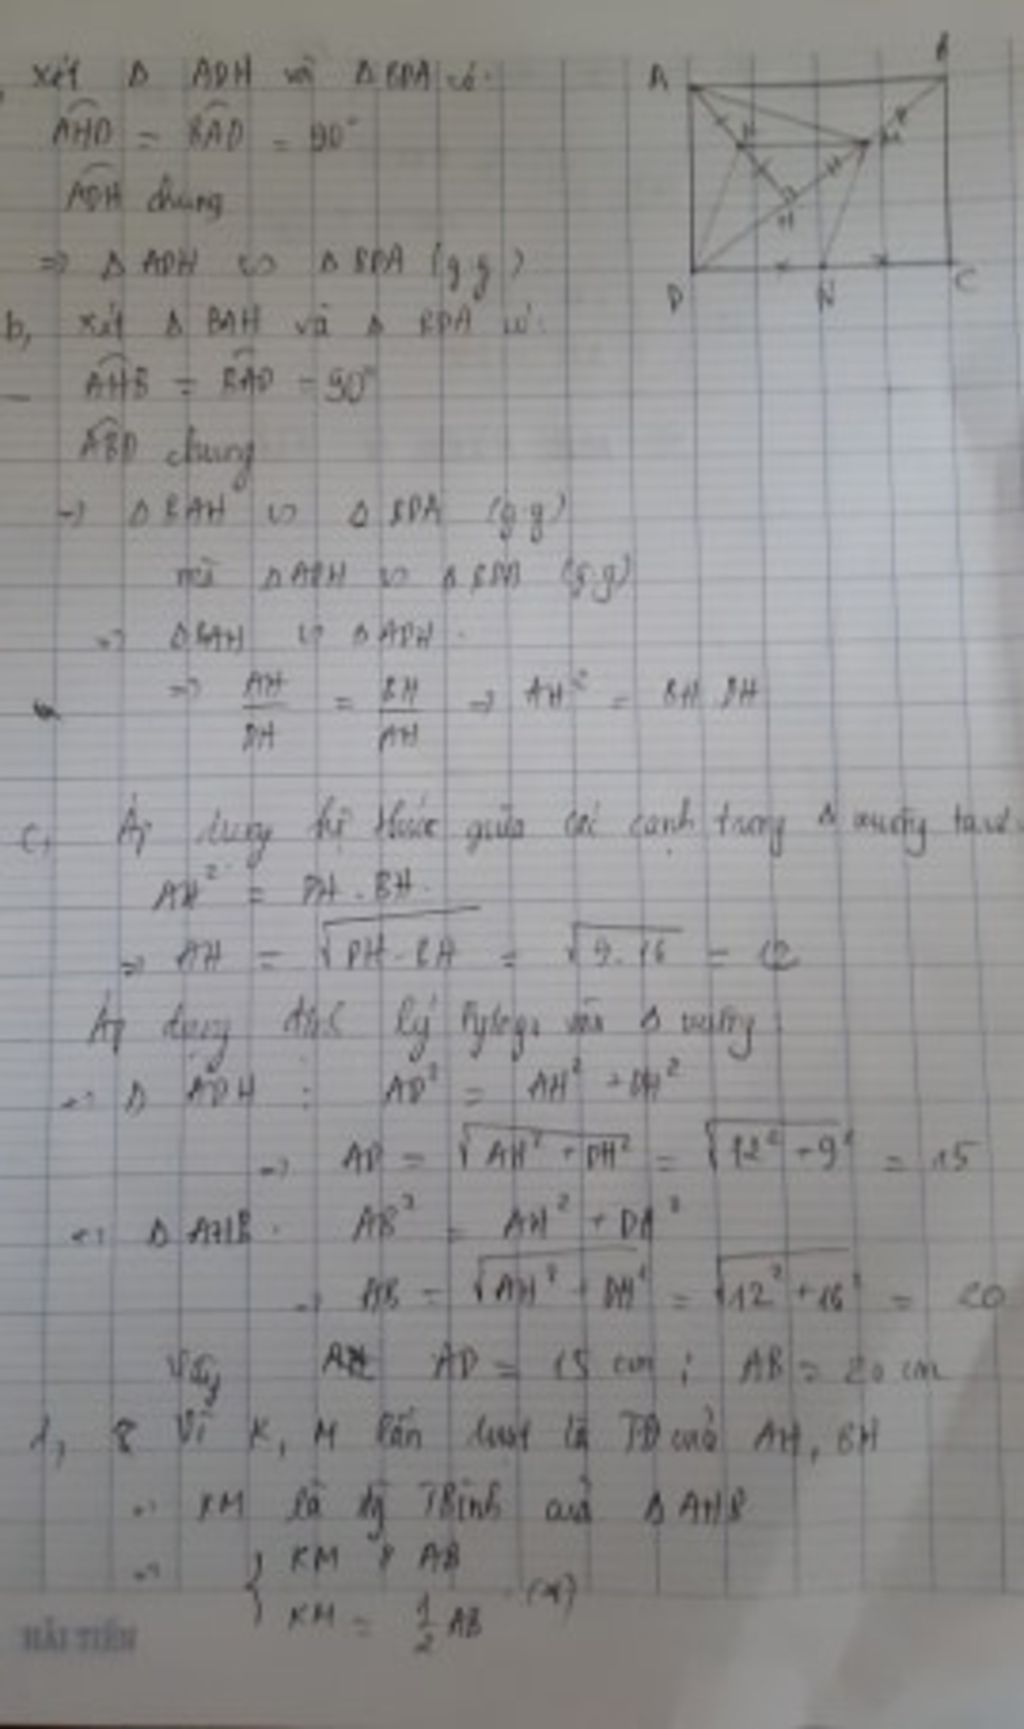 xét Δ ADH và Δ BDA có:
AHD = BAD = 90°
ADH chung
=> Δ ADH ∽ Δ BDA (g.g)
b, xét Δ BAH và Δ BDA có:
AHB = BAD = 90°
ABD chung
=> Δ BAH ∽ Δ BDA (g.g)
mà Δ ADH ∽ Δ BDA (g.g)
=> Δ BAH ∽ Δ ADH
=> AH/DH = BH/AH => AH² = BH.DH
c, Áp dụng hệ thức giữa các cạnh trong Δ vuông
AH² = DH.BH
=> AH = √DH.BH = √9.16 = 12
Áp dụng định lý Pytago vào Δ vuông
Δ ADH : AD² = AH² + DH²
=> AD = √AH² + DH² = √12² + 9² = 15
Δ AHB: AB² = AH² +
=> AB = √AH² + DH² = √12² + 16² = 20
Vậy AD = 15 cm ; AB = 20 cm
Vì K, M lần lượt là TĐ của AH, BH
=> KM là TBình của Δ AHB
=> { KM AB
KM = 1/2 AB (*)
A
B
K
M
H
D
N
C
HẢI TIẾN